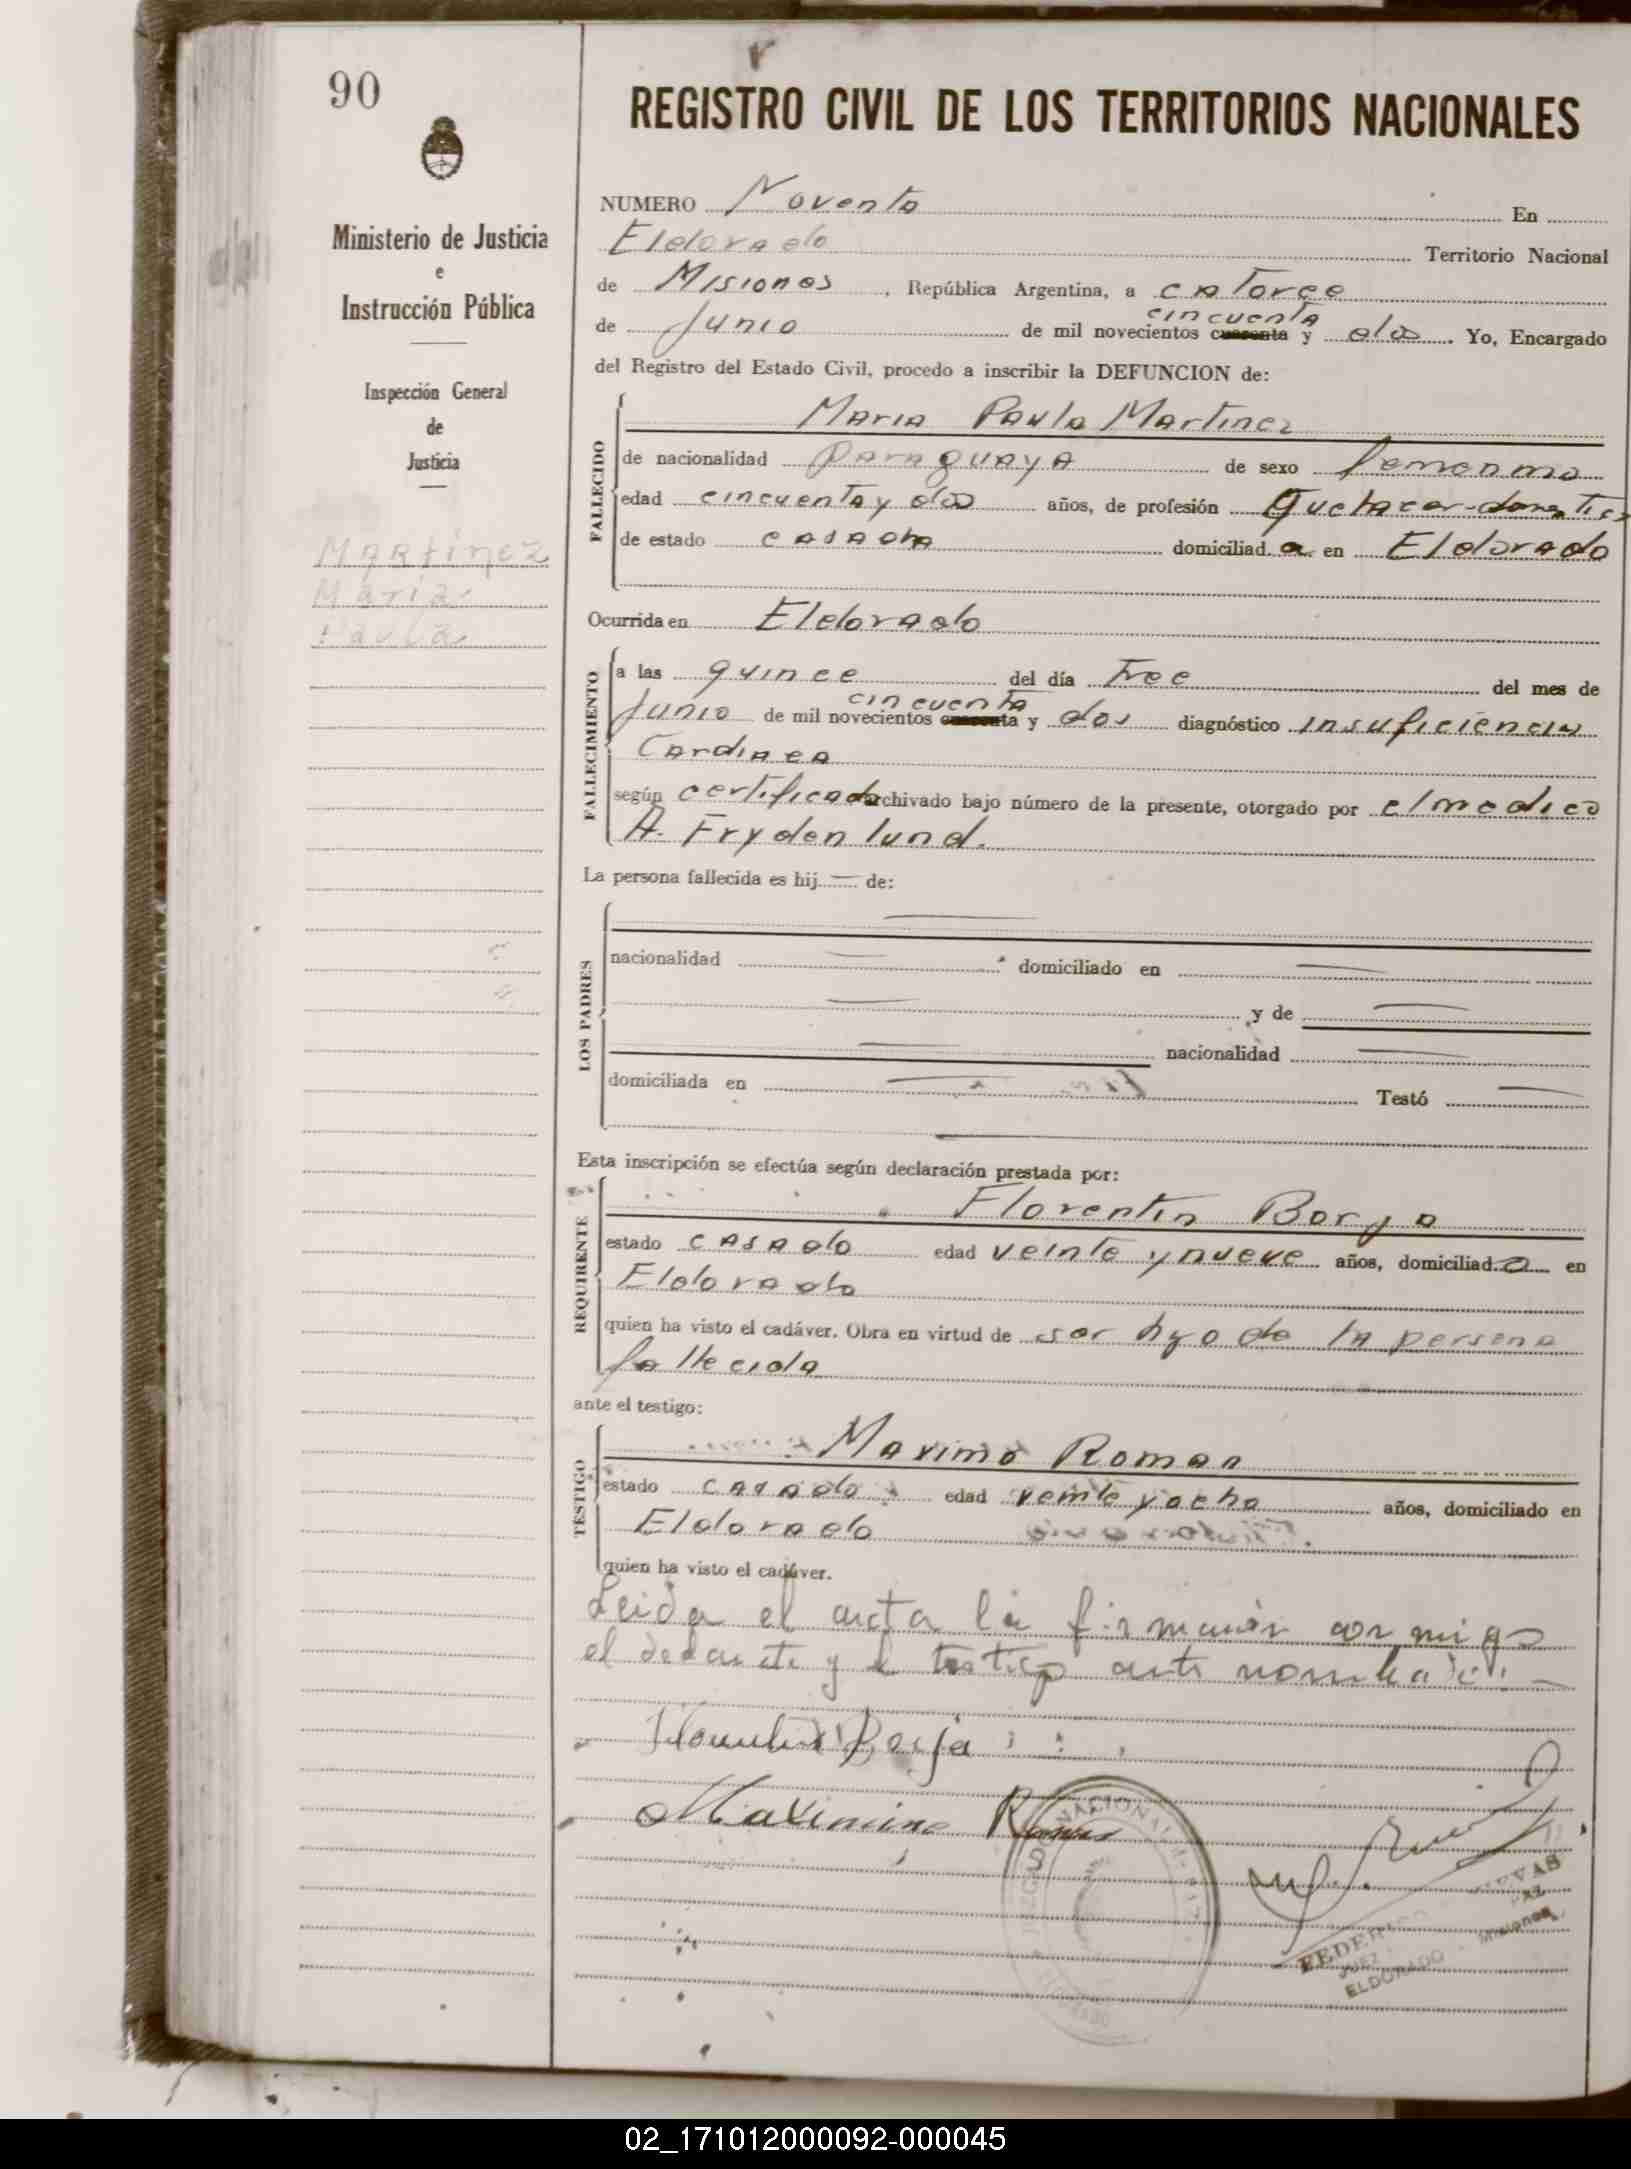 90
REGISTRO CIVIL DE LOS TERRITORIOS NACIONALES
Ministerio de Justicia
e
Instrucción Pública
Inspección General
de
Justicia
Martinez
Maria
Paula
NUMERO Noventa En
Eldorado Territorio Nacional
de Misiones, República Argentina, a catorce
cincuenta
de Junio de mil novecientos cuarenta y dos. Yo, Encargado
del Registro del Estado Civil, procedo a inscribir la DEFUNCION de:
FALLECIDO
Maria Paula Martinez
de nacionalidad Paraguaya de sexo femenino
edad cincuenta y dos años, de profesión Quehacer-domestico
de estado casada domiciliada en Eldorado
Ocurrida en Eldorado
FALLECIMIENTO
a las quince del día Trece del mes de
cincuenta
Junio de mil novecientos cuarenta y dos diagnóstico insuficiencia
Cardiaca
según certificado archivado bajo número de la presente, otorgado por el medico
A. Frydenlund.
La persona fallecida es hij— de:
LOS PADRES
nacionalidad — domiciliado en —
— y de —
— nacionalidad —
domiciliada en — Testó —
Esta inscripción se efectúa según declaración prestada por:
REQUIRENTE
Florentin Borja
estado casado edad veinte y nueve años, domiciliado en
Eldorado
quien ha visto el cadáver. Obra en virtud de ser hijo de la persona
fallecida
ante el testigo:
TESTIGO
Maximo Roman
estado casado edad veinte y ocho años, domiciliado en
Eldorado
quien ha visto el cadáver.
Leida el acta la firmaron conmigo
el declarante y el testigo ante nombrado.
Florentin Borja
Maximino Roman
NACIONAL
ELDORADO
FEDERICO CUEVAS
JUEZ PAZ
ELDORADO - Misiones
02_171012000092-000045